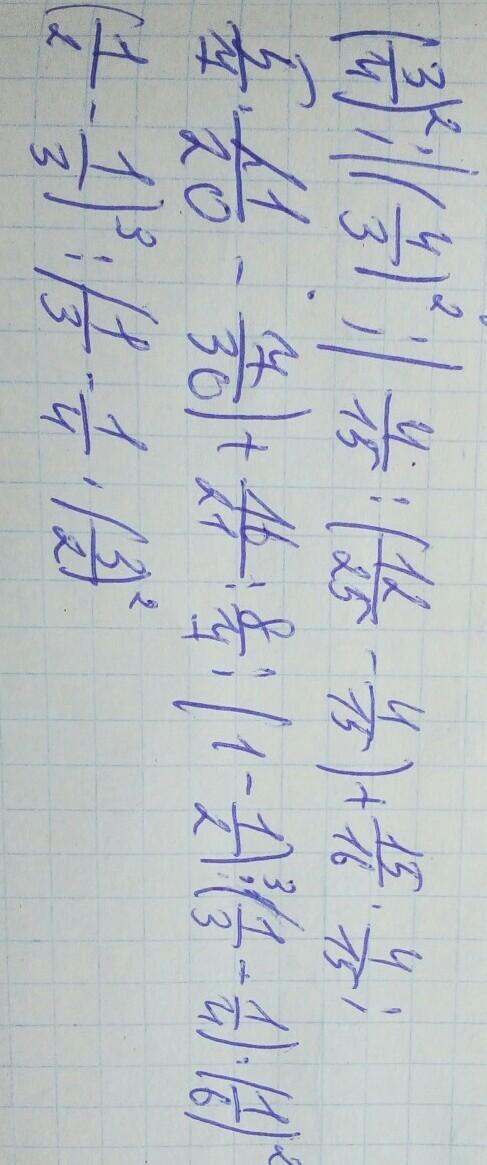 (3/4)²; (4/3)²; 4/15 : (12/25 - 4/15) + 15/16 · 4/15;
5/7 · (11/20 - 7/30) + 16/21 : 8/7; (1 - 1/2)³ : (1/3 - 1/4) · (1/6)²
(1/2 - 1/3)³ : (1/3 - 1/4 · (3/2)²